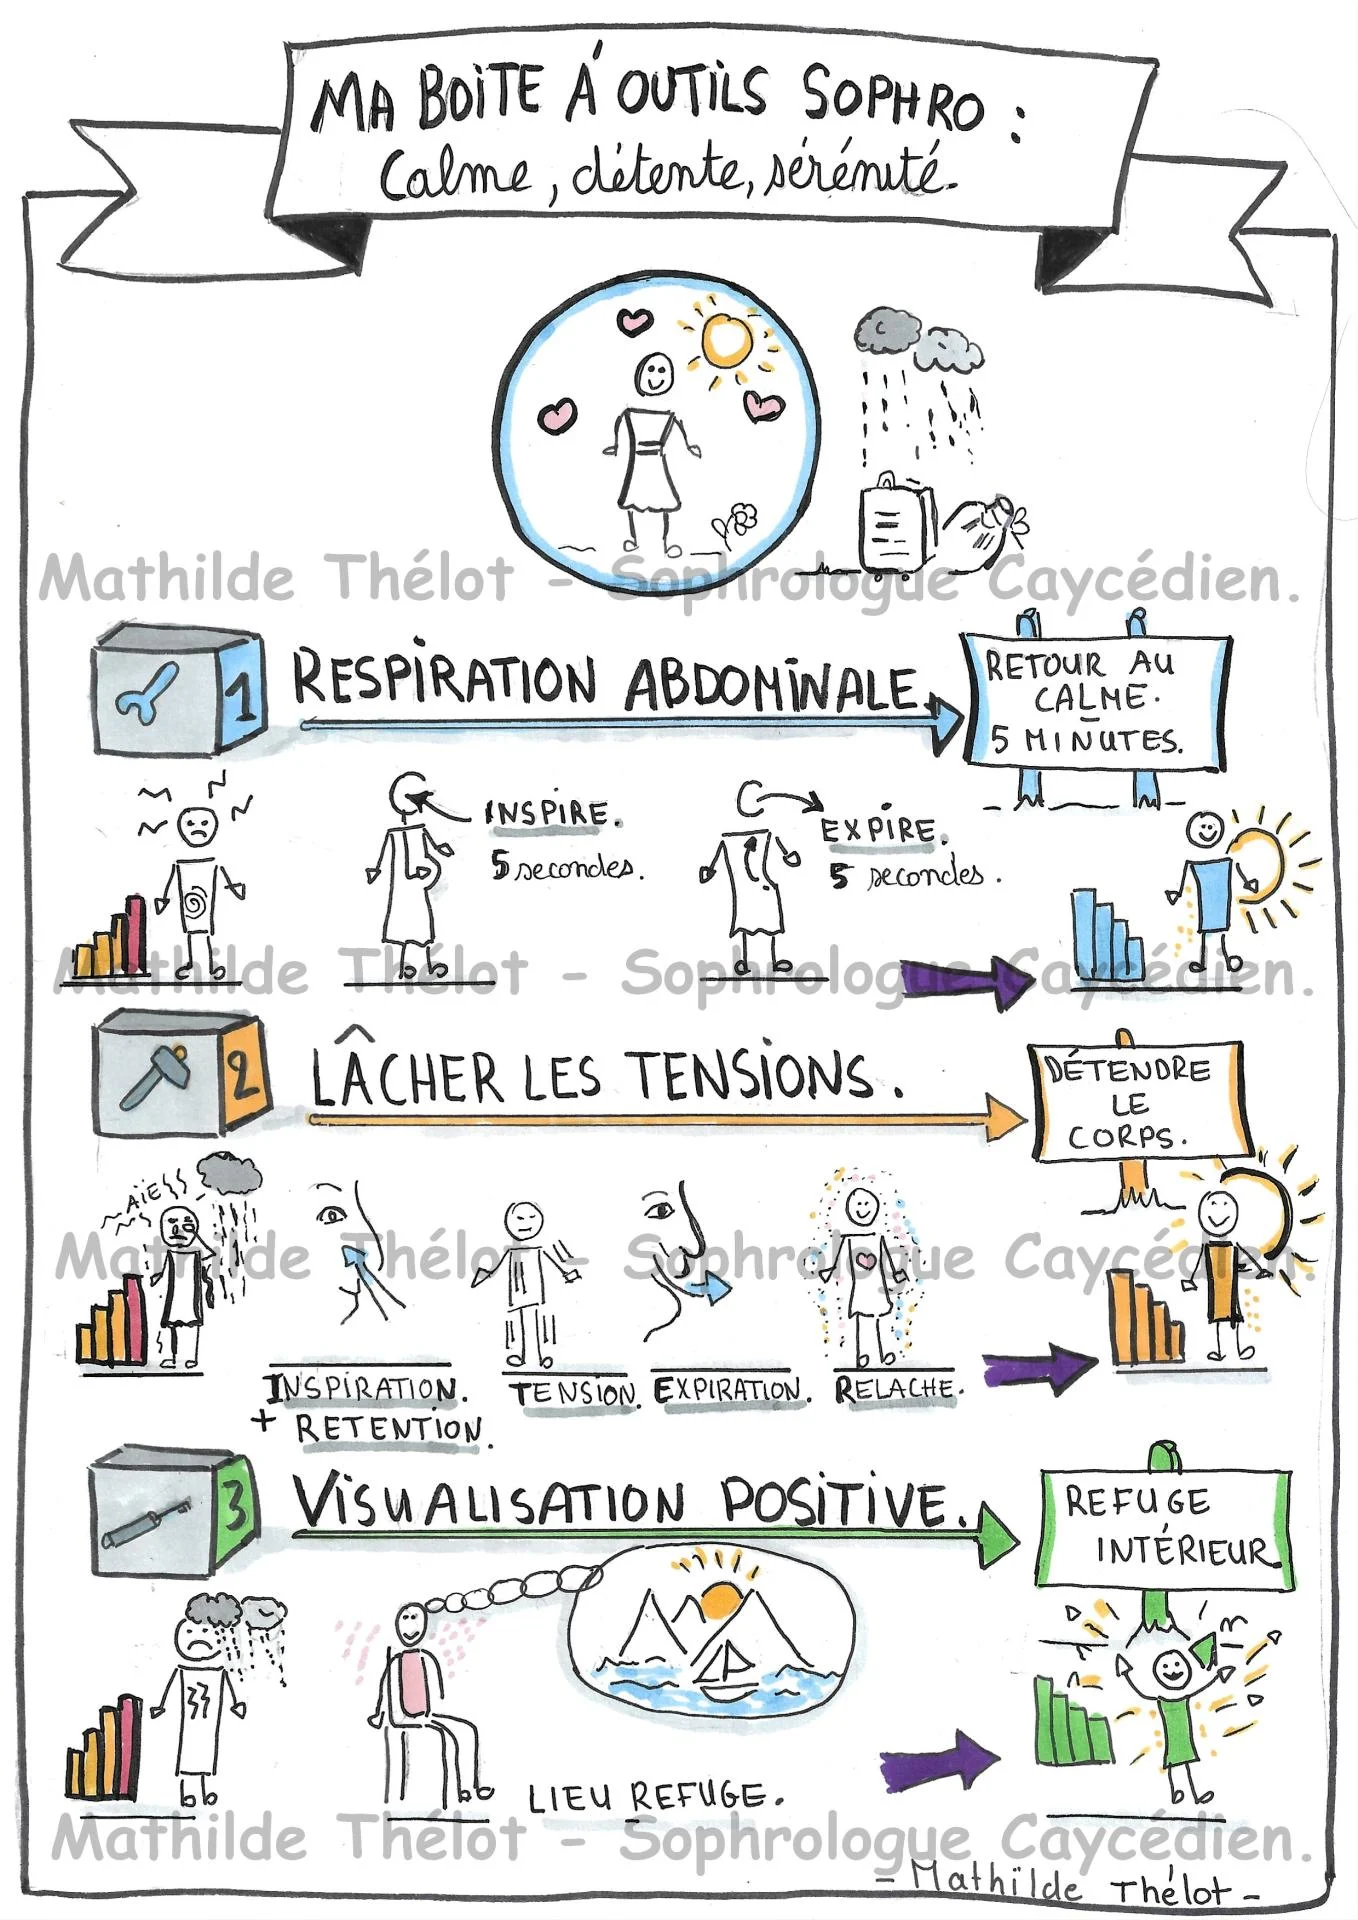 MA BOITE À OUTILS SOPHRO :
Calme, détente, sérénité.
Mathilde Thélot - Sophrologue Caycédien.
1
RESPIRATION ABDOMINALE.
RETOUR AU
CALME.
-
5 MINUTES.
INSPIRE.
5 secondes.
EXPIRE.
5 secondes.
Mathilde Thélot - Sophrologue Caycédien.
2
LÂCHER LES TENSIONS.
DÉTENDRE
LE
CORPS.
AIE
Mathilde Thélot - Sophrologue Caycédien.
INSPIRATION.
+ RETENTION.
TENSION.
EXPIRATION.
RELACHE.
3
VISUALISATION POSITIVE.
REFUGE
INTÉRIEUR.
LIEU REFUGE.
Mathilde Thélot - Sophrologue Caycédien.
- Mathilde Thélot -